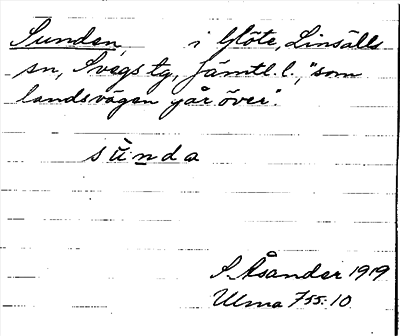 Sunden, i Glöte, Linsälls
sn, Svegs tg, Jämtl. l., "som
landsvägen går över".
sùnda
S. Åsander 1919
Ulma 755:10